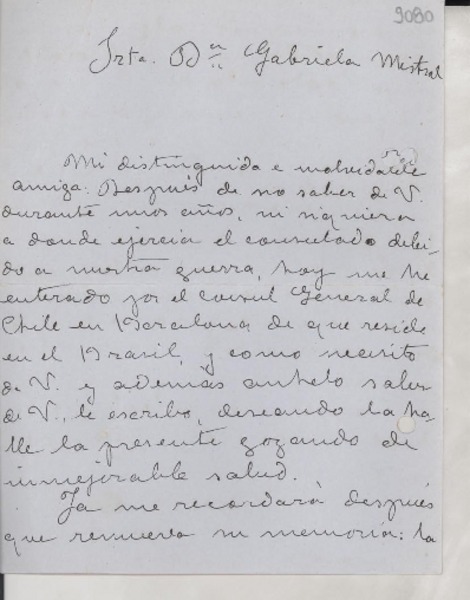 9080
Srta. Dña Gabriela Mistral
Mi distinguida e inolvidable
amiga: Después de no saber de V.
durante unos años, ni siquiera
a donde ejercía el consulado debi-
do a nuestra guerra, hoy me he
enterado por el Consul General de
Chile en Barcelona de que reside
en el Brasil, y como necesito
de V. y además anhelo saber
de V., le escribo, deseando la ha-
lle la presente gozando de
inmejorable salud.
Ya me recordará después
que remueva su memoria: la